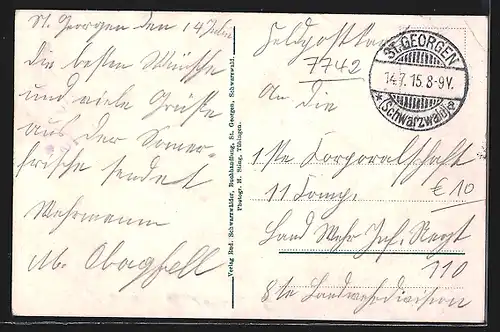 St. Georgen den 14 Julie
die besten Wünsche
und viele Grüße
aus der Somer-
frische sendet
Wehrmann
Verlag Rud. Schwarzwälder, Buchhandlung, St. Georgen, Schwarzwald.
Photogr. H. Sting, Tübingen.
Feldpostkarte
7742
ST. GEORGEN
14.7.15.8-9V.
* (Schwarzwald) a
An die
1ste Corporalschaft
11 Comp.
€ 10
Land Wehr Inf. Regt
110
8te Landwehrdivision